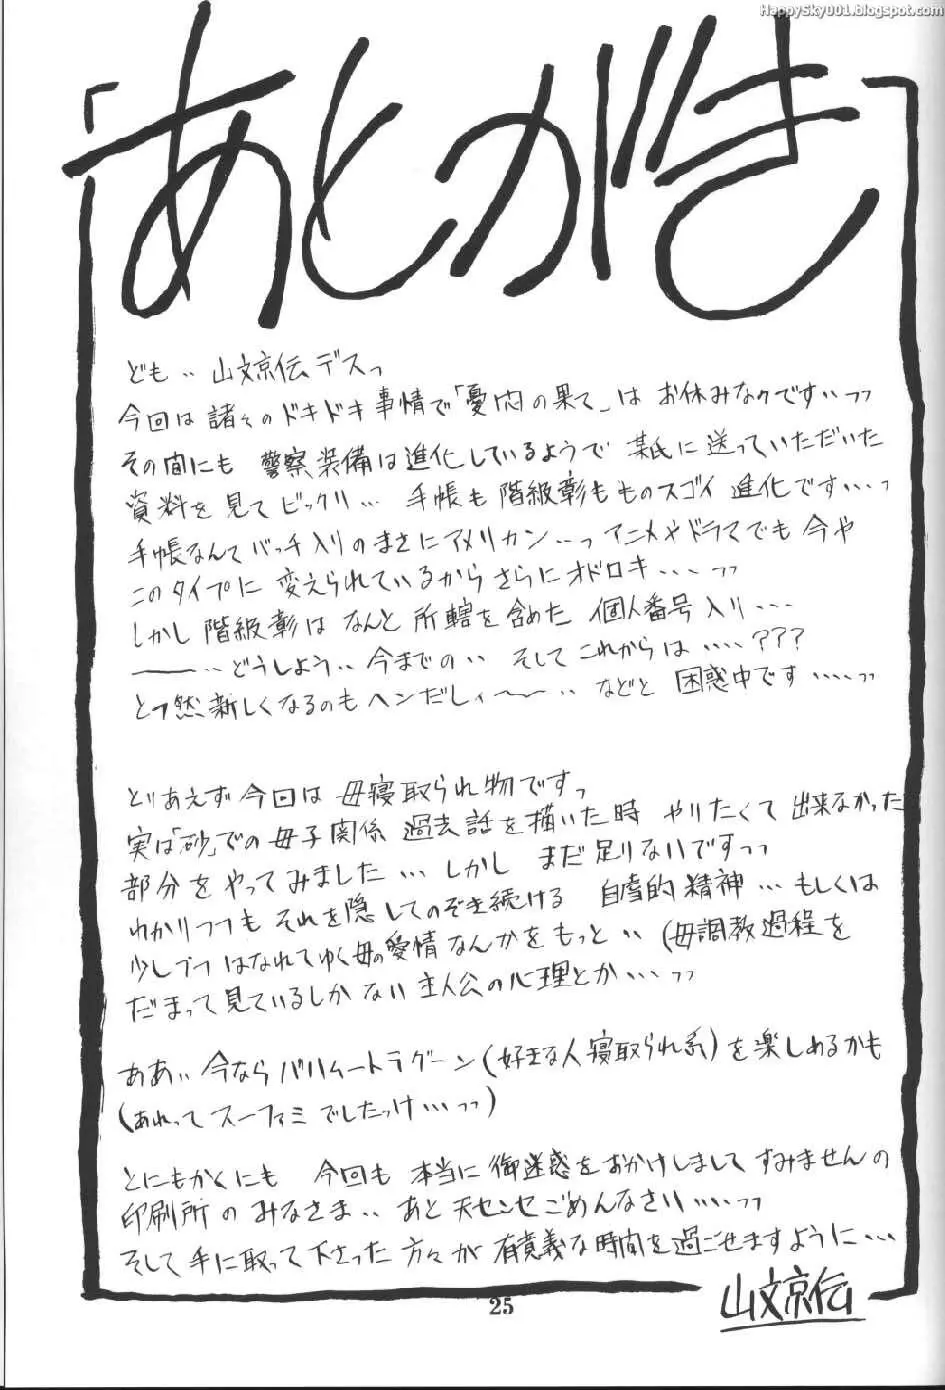 HappySky001.blogspot.com
あとがき
ども‥山文京伝デスっ
今回は諸々のドキドキ事情で「憂悶の果て」はお休みなのですいっっ
その間にも 警察装備は進化しているようで 某氏に送っていただいた
資料を見てビックリ… 手帳も階級章もものスゴイ進化です…っ
手帳なんてバッチ入りのまさにアメリカン…っ アニメやドラマでも今や
このタイプに変えられているからさらにオドロキ…っっ
しかし階級章はなんと所轄を含めた個人番号入り…
――‥どうしよう‥今までの‥そしてこれからは……???
とつ然新しくなるのもヘンだしィ～～‥などと困惑中です……っっ
とりあえず今回は母寝取られ物ですっ
実は「砂」での母子関係 過去話を描いた時 やりたくて出来なかった
部分をやってみました…しかし まだ足りないですっっ
わかりつつもそれを隠してのぞき続ける 自虐的精神…もしくは
少しづつはなれてゆく母の愛情なんかをもっと‥(母調教過程を
だまって見ているしかない主人公の心理とか…っっ
ああ‥今ならバハムートラグーン(好きな人寝取られ系)を楽しめるかも
(あれってスーファミでしたっけ…っっ)
とにもかくにも 今回も 本当に御迷惑をおかけしましてすみませんの
印刷所のみなさま‥あと天センセごめんなさい……っっ
そして手に取って下さった方々が有意義な時間を過ごせますように…
山文京伝
25